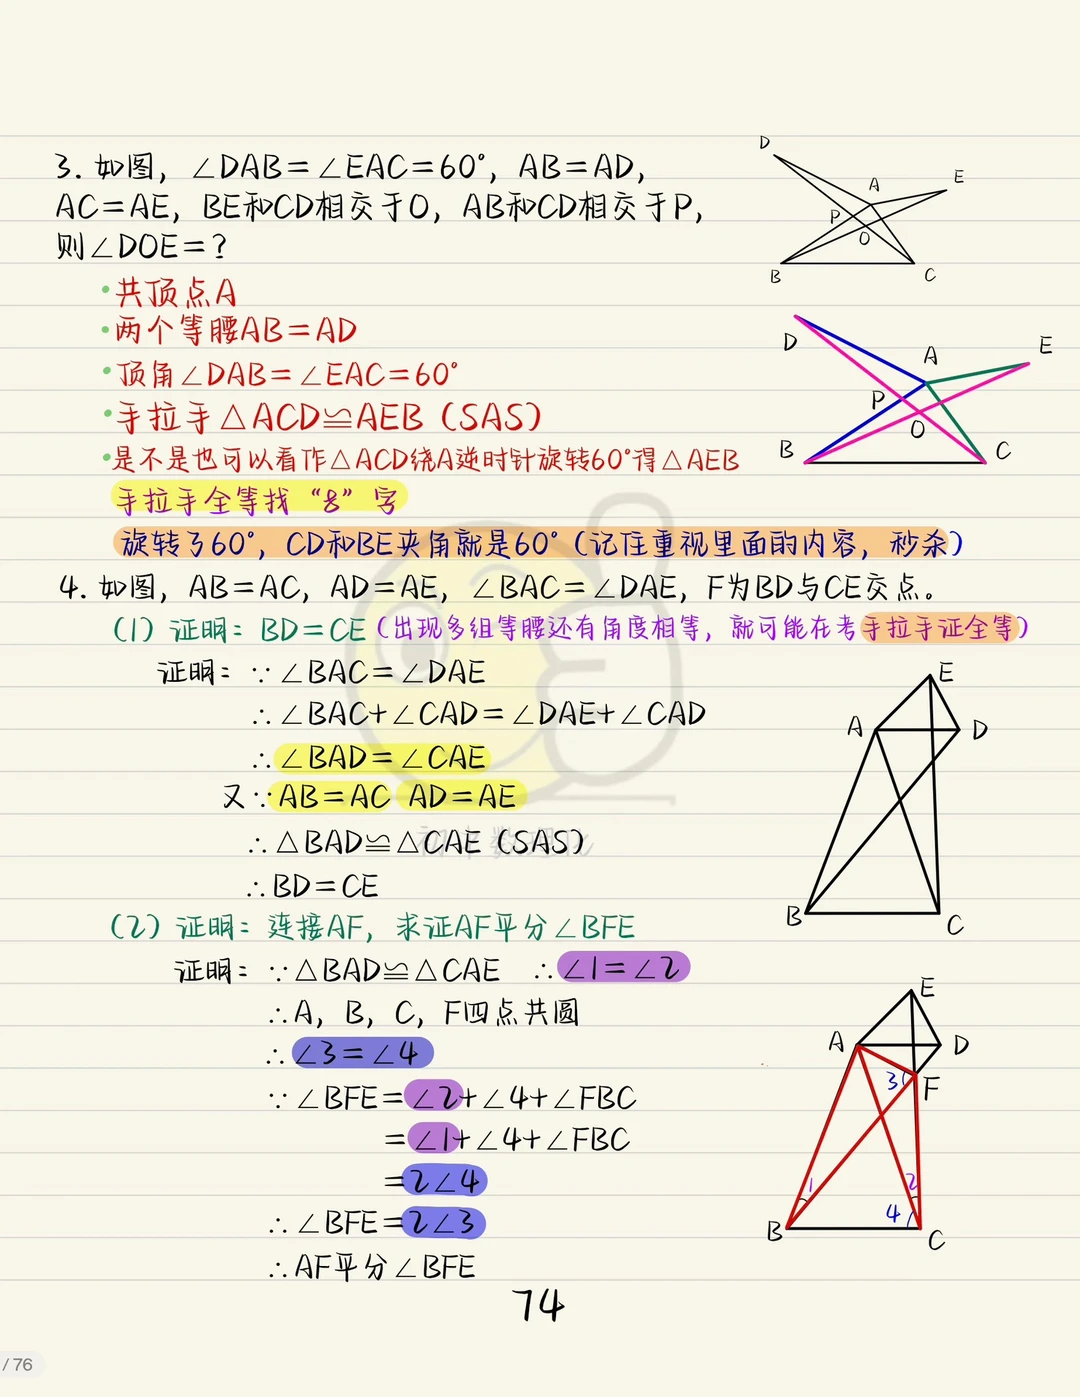 3. 如图，∠DAB=∠EAC=60°，AB=AD，
AC=AE，BE和CD相交于O，AB和CD相交于P，
则∠DOE=?
·共顶点A
·两个等腰AB=AD
·顶角∠DAB=∠EAC=60°
·手拉手△ACD≌AEB (SAS)
·是不是也可以看作△ACD绕A逆时针旋转60°得△AEB
手拉手全等找“8”字
旋转了60°，CD和BE夹角就是60° (记住重视里面的内容，秒杀)
D
A
E
P
O
B
C
D
A
E
P
O
B
C
4. 如图，AB=AC，AD=AE，∠BAC=∠DAE，F为BD与CE交点。
(1) 证明：BD=CE (出现多组等腰还有角度相等，就可能在考手拉手证全等)
证明：∵∠BAC=∠DAE
∴∠BAC+∠CAD=∠DAE+∠CAD
∴∠BAD=∠CAE
又∵AB=AC AD=AE
∴△BAD≌△CAE (SAS)
∴BD=CE
E
A
D
B
C
(2) 证明：连接AF，求证AF平分∠BFE
证明：∵△BAD≌△CAE ∴∠1=∠2
∴A，B，C，F四点共圆
∴∠3=∠4
∵∠BFE=∠2+∠4+∠FBC
=∠1+∠4+∠FBC
=2∠4
∴∠BFE=2∠3
∴AF平分∠BFE
E
A
D
3
F
1
2
4
B
C
74
/ 76